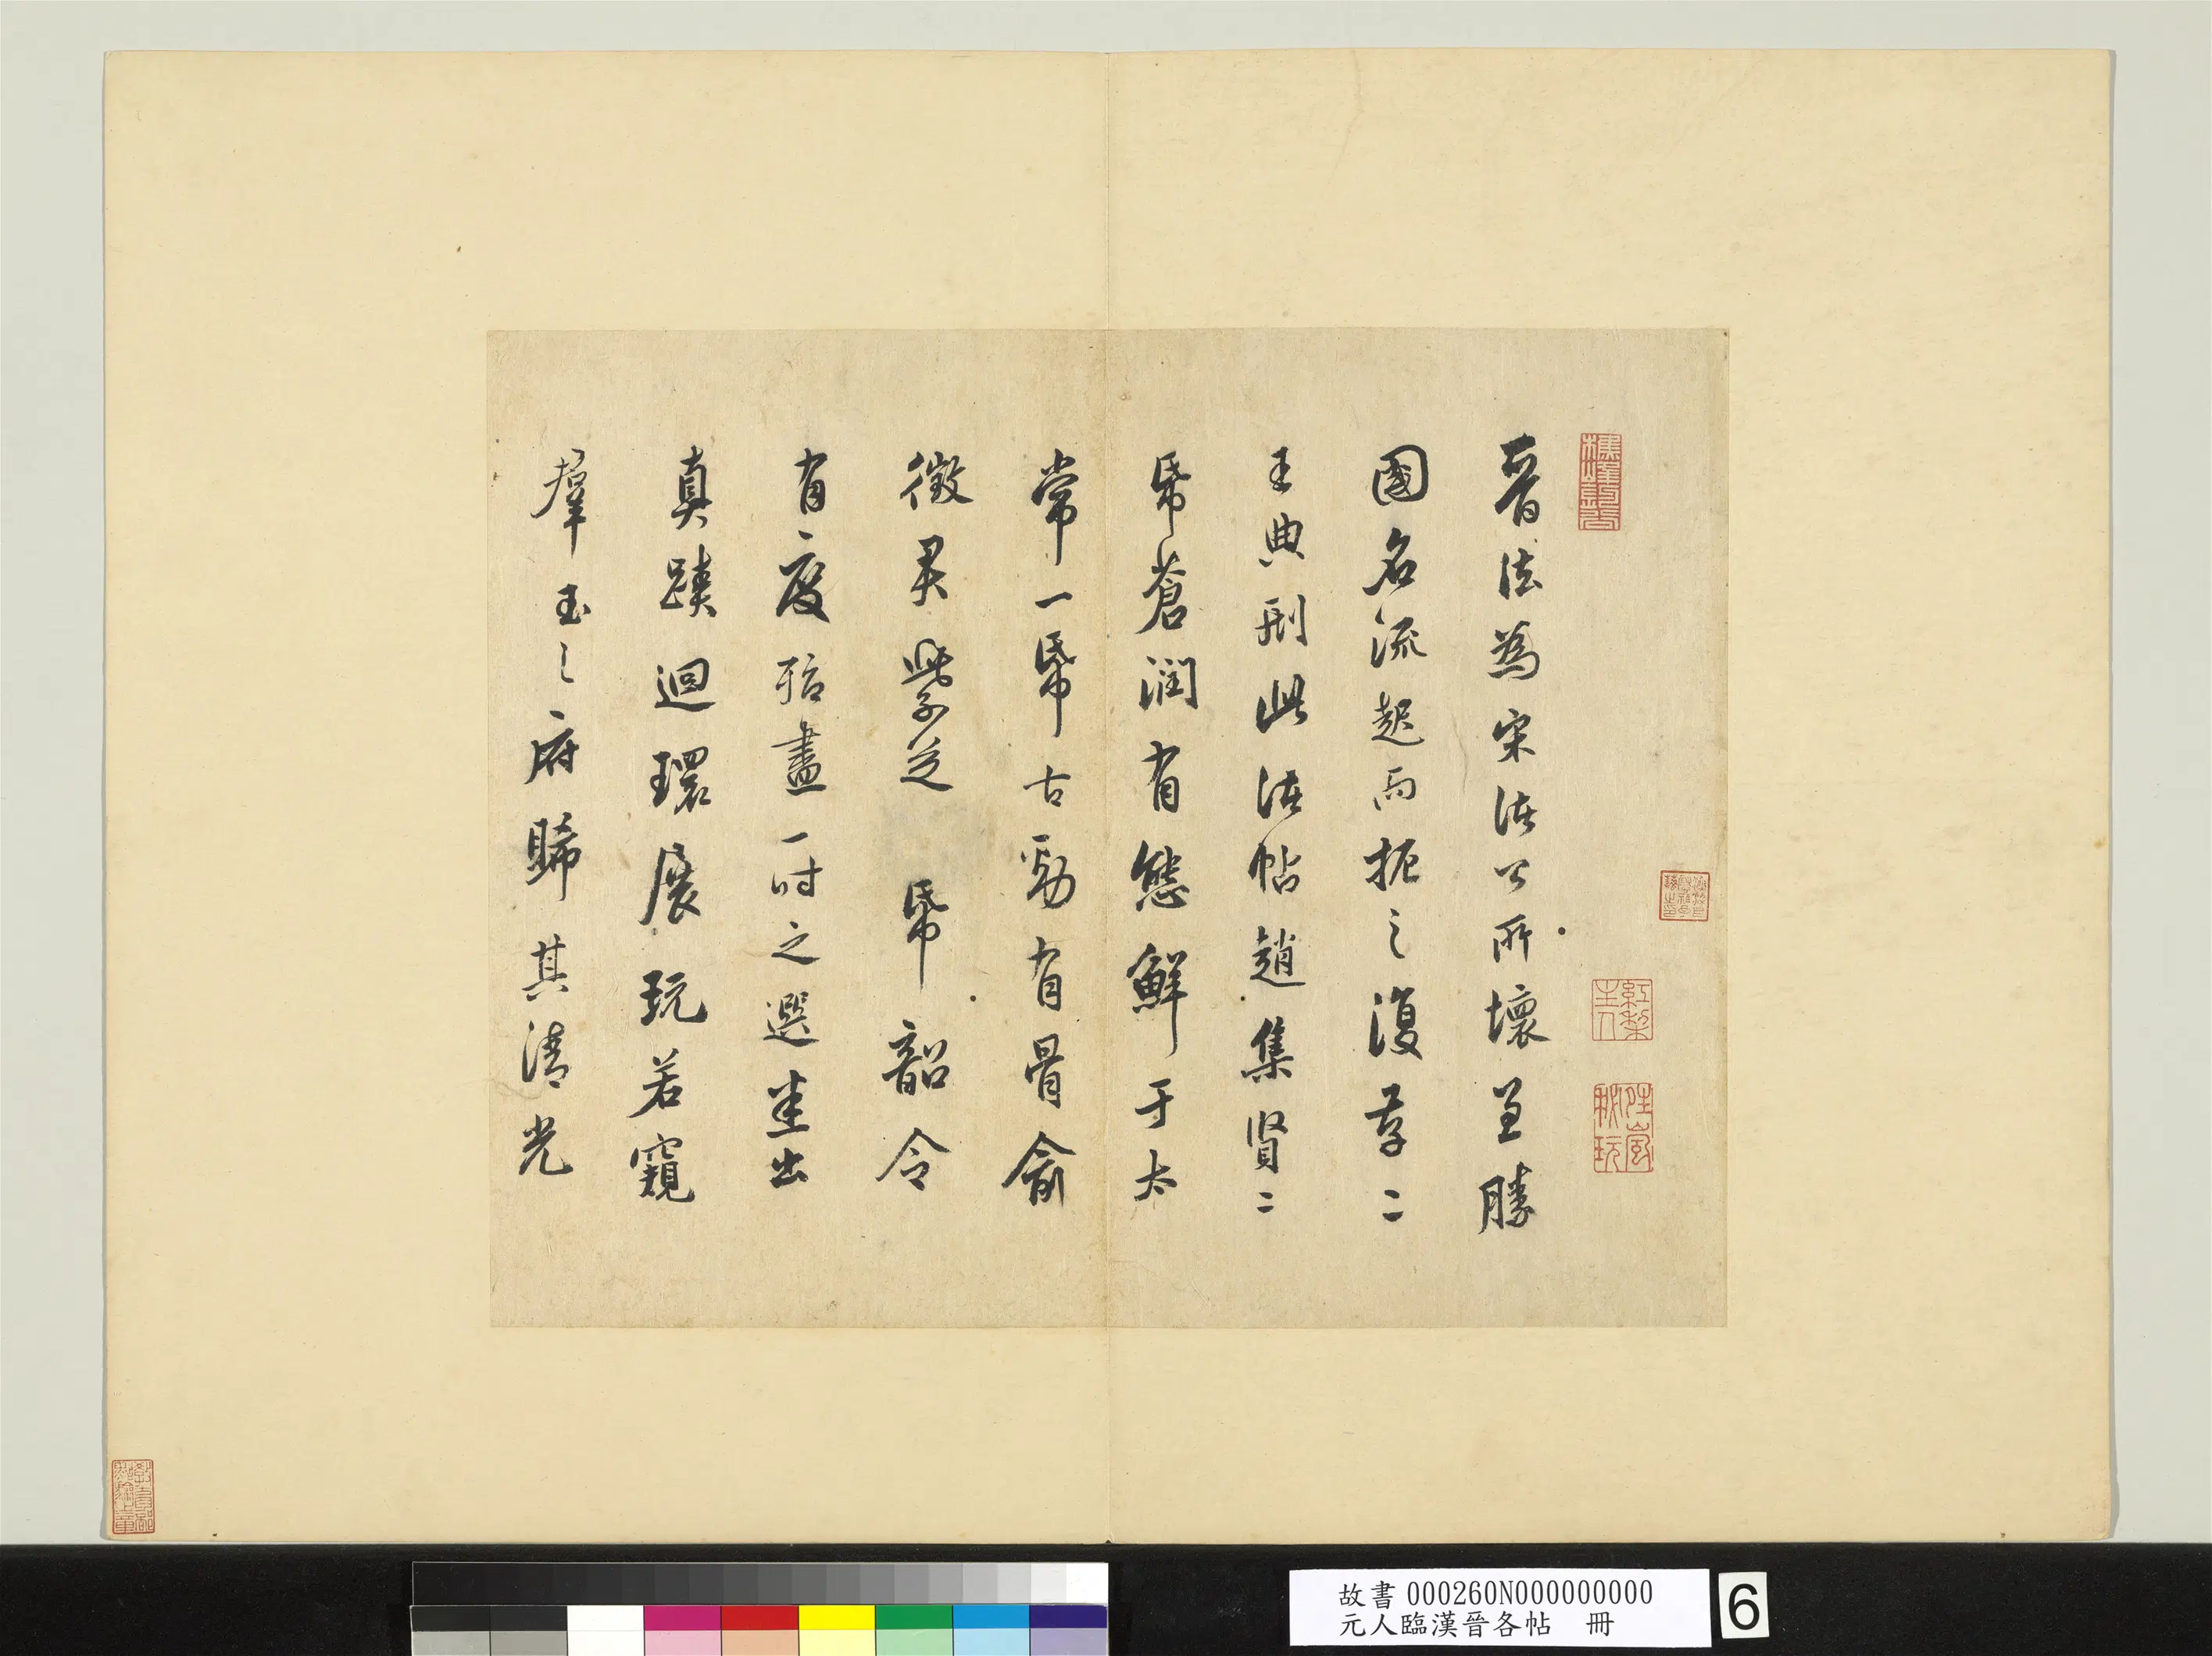 晉法為宋法公所壞至勝
國名流起而振之復存二
王典刑此法帖趙集賢二
帋蒼潤有態鮮于太
常一帋古勁有骨俞
徵君紫芝 帋韶令
有度殆盡一時之選並出
真蹟迴環展玩若窺
羣玉之府睎其清光
紅梨
主人
故書000260N000000000
元人臨漢晉各帖 冊
6